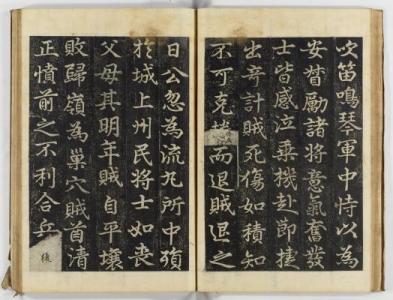 吹笛鳴琴軍中恃以為
安督勵諸將意氣奮發
士皆感泣乘機赴節捷
出奇計賊死傷如積知
不可克而退賊退之
日公忽為流丸所中殞
於城上州民將士如喪
父母其明年賊自平壤
敗歸嶺為巢穴賊酋清
正憤前之不利合兵
後